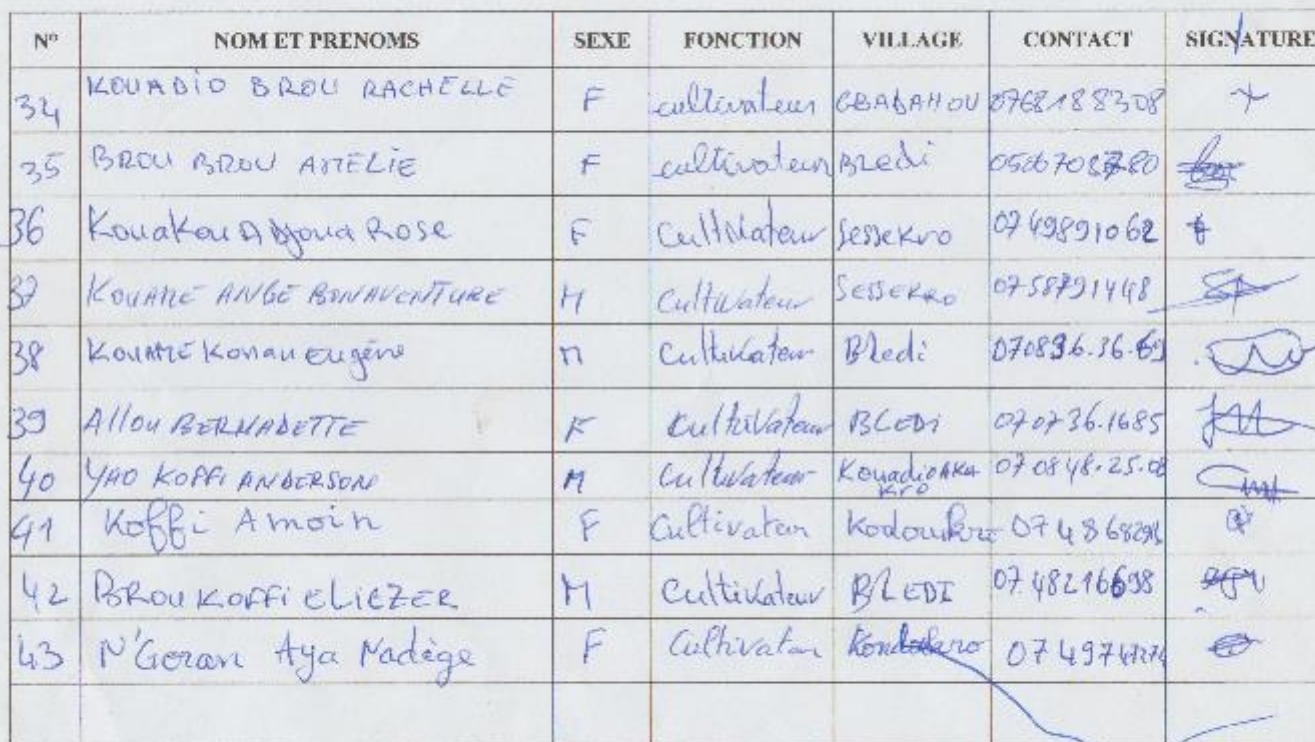 N° NOM ET PRENOMS SEXE FONCTION VILLAGE CONTACT SIGNATURE
34 KOUADIO BROU RACHELLE F cultivateur GBADAHOU 0768188308
35 BROU BROU AMELIE F cultivateur Bledi 0506708780
36 Kouakou Adjoua Rose F Cultivateur Sessekro 0749891062
37 KOUAME ANGE BONAVENTURE M Cultivateur Sessekro 0758791448
38 KOUAME Konan Eugène M Cultivateur Bledi 070896.36.69
39 Allou BERNADETTE F Cultivateur BLEDi 070736.1685
40 YAO KOFFI ANDERSON M Cultivateur KouadioAKA 070848.25.08
KRO
41 Koffi Amoin F Cultivateur
42 BROU KOFFI ELIEZER M Cultivateur BLEDI 0748216698
43 N'Goran Aya Nadège F Cultivateur